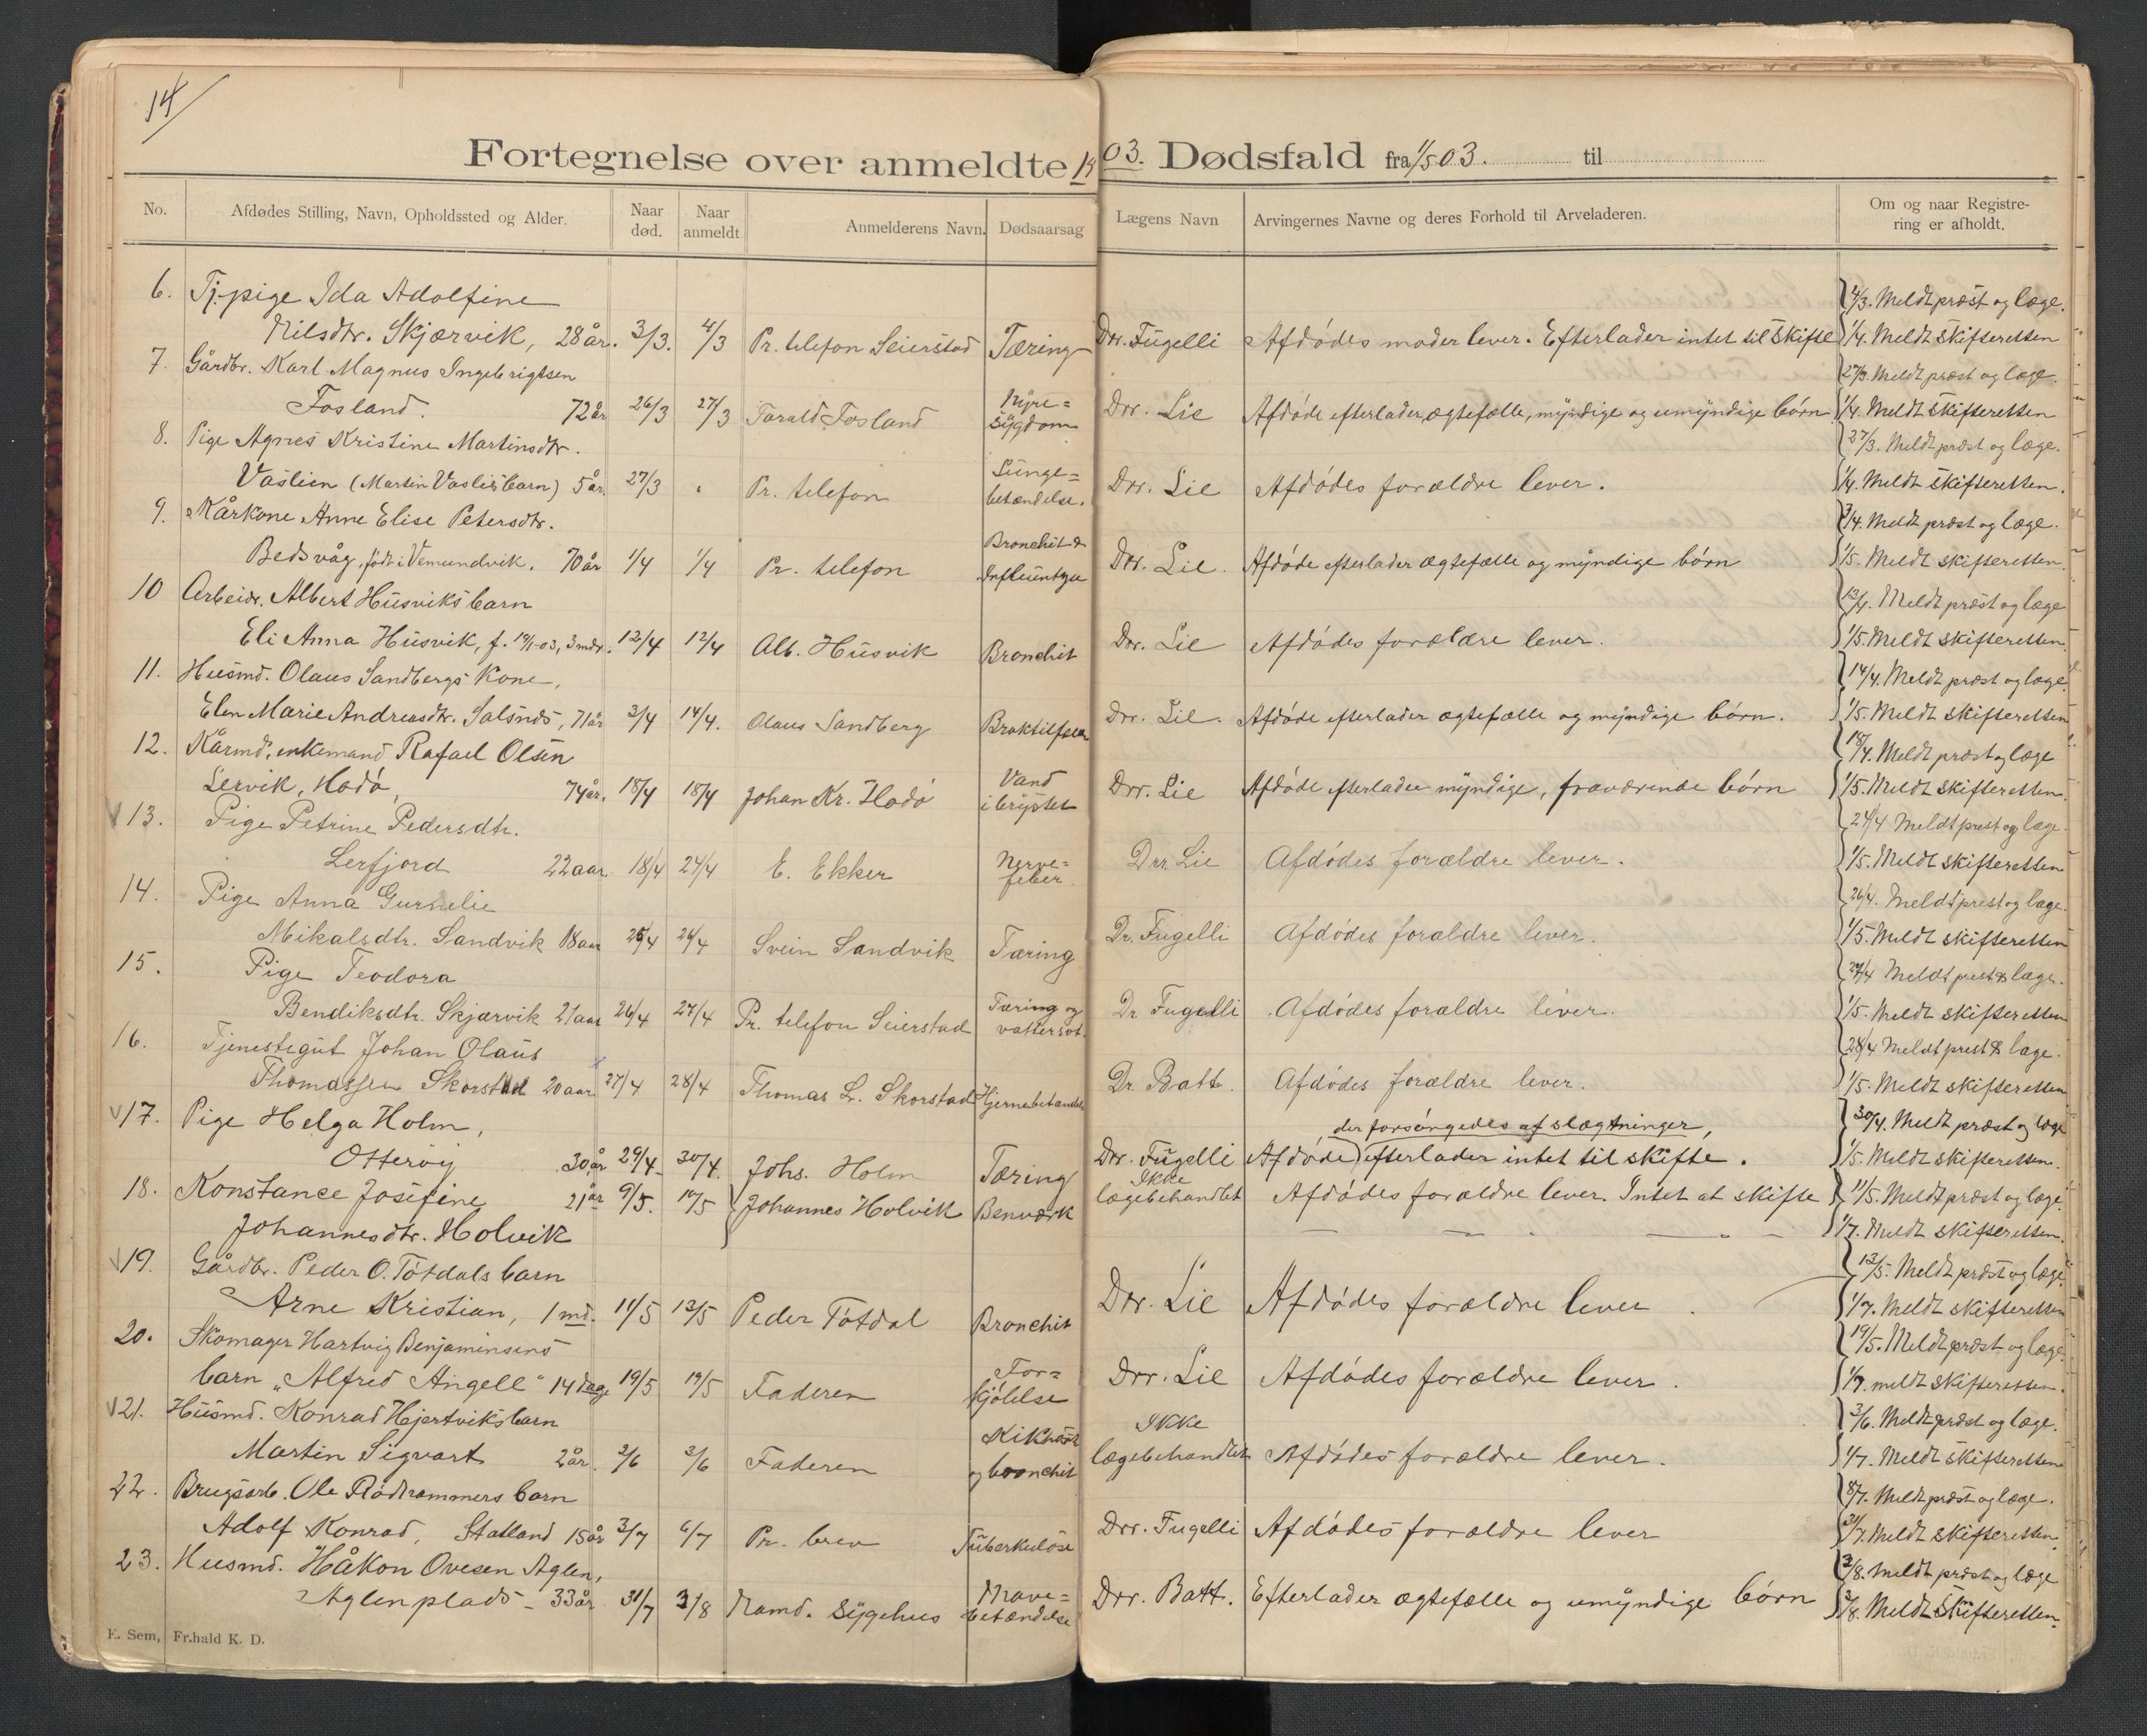 14
Fortegnelse over anmeldte 1903. Dødsfald fra 1/5 03. til
No. Afdødes Stilling, Navn, Opholdssted og Alder. Naar død. Naar anmeldt Anmelderens Navn. Dødsaarsag Lægens Navn Arvingernes Navne og deres Forhold til Arveladeren. Om og naar Registrering er afholdt.
6. Tj.pige Ida Adolfine 4/3. Meldt præst og læge.
Nilsdtr. Skjærvik, 28 år. 3/3. 4/3 Pr. telefon Seierstad Tæring Drr. Fugelli Afdødes moder lever. Efterlader intet til skifte 1/4. Meldt skifteretten
7. Gårdbr. Karl Magnus Ingebrigtsen 27/3. Meldt præst og læge.
Fosland. 72 år 26/3 27/3 Tarald Fosland Nyre=sygdom Drr. Lie Afdøde efterlader ægtefælle, myndige og umyndige børn 1/4. Meldt skifteretten
8. Pige Agnes Kristine Martinsdtr. 27/3. Meldt præst og læge.
Vaslien (Martin Vasliens barn) 5 år. 27/3 " Pr. telefon Lunge=betændelse. Drr. Lie Afdødes forældre lever. 1/4. Meldt skifteretten.
9. Kårkone Anne Elise Petersdtr. 3/4. Meldt præst og læge.
Bedsvåg, født i Vemundvik. 70 år 1/4 1/4 Pr. telefon Bronchit & Influentza Drr. Lie. Afdøde efterlader ægtefælle og myndige børn 1/5. Meldt skifteretten.
10 Arbeidr. Albert Husviks barn 13/4. Meldt præst og læge
Eli Anna Husvik, f. 19/1-03, 3 mdr. 12/4 12/4 Alb. Husvik Bronchit Drr. Lie Afdødes forældre lever. 1/5. Meldt skifteretten.
11. Husmd. Olaus Sandbergs kone, 14/4. Meldt præst og læge.
Elen Marie Andreasdtr. Salsnes, 71 år 3/4 14/4. Olaus Sandberg Braktilfælde Drr. Lie. Afdøde efterlader ægtefælle og myndige børn. 1/5. Meldt skifteretten
12. Kårmd, enkemand Rafael Olsen 18/4. Meldt præst og læge
Lervik, Hodø, 74 år. 18/4 18/4 Johan Kr. Hodø Vand i brystet Drr. Lie Afdøde efterlader myndige, fraværende børn 1/5. Meldt skifteretten.
13. Pige Petrine Pedersdtr. 24/4 Meldt prest og læge.
Lerfjord 22 aar. 18/4 24/4 E. Ekker Nerve=feber Drr. Lie Afdødes forældre lever. 1/5. Meldt skifteretten
14. Pige Anna Gurnelie 26/4. Meldt prest og læge.
Mikalsdtr. Sandvik 18 aar 25/4 26/4 Svein Sandvik Tæring Dr. Fugelli Afdødes forældre lever. 1/5. Meldt skifteretten
15. Pige Teodora 27/4 Meldt prest & læge.
Bendiksdtr. Skjærvik 21 aar 26/4 27/4 Pr. telefon Seierstad Tæring og vattersot. Dr. Fugelli Afdødes forældre lever. 1/5. Meldt skifteretten
16. Tjenestegut Johan Olaus 28/4 Meldt prest & læge.
Thomassen Skorstad 20 aar 27/4 28/4 Thomas L. Skorstad Hjernebetændelse Dr. Batt. Afdødes forældre lever. 1/5. Meldt skifteretten
17. Pige Helga Holm, der forsørgedes af slægtninger, 30/4. Meldt præst og læge
Otterøy 30 år 29/4 30/4. Johs. Holm Tæring Drr. Fugelli Afdøde efterlader intet til skifte. 1/5. Meldt skifteretten.
18. Konstance Josefine 21 år 9/5. 10/5 Johannes Holvik Benværk Ikke lægebehandlet Afdødes forældre lever. Intet at skifte 11/5. Meldt præst og læge.
Johannesdtr. Holvik 1/7. Meldt skifteretten.
19. Gårdbr. Peder O. Tøtdals barn 13/5. Meldt præst og læge.
Arne Kristian, 1 md. 11/5 13/5 Peder Tøtdal Bronchit Drr. Lie Afdødes forældre lever. 1/7. Meldt skifteretten
20. Skomager Hartvig Benjaminsens 19/5. Meldt præst og læge.
barn "Alfred Angell" 14 dage 19/5 19/5 Faderen For=kjølelse Drr. Lie Afdødes forældre lever. 1/7. meldt skifteretten.
21. Husmd. Konrad Hjertviks barn 3/6. Meldt præst og læge.
Martin Sigvart 2 år. 2/6 3/6 Faderen Kikhoste og bronchit Ikke lægebehandlet Afdødes forældre lever. 1/7. Meldt skifteretten
22. Brugsarb. Ole Rødhammers barn 8/7. Meldt præst og læge.
Adolf Konrad, Statland 15 år 3/7 6/7 Pr. brev Tuberkulose Drr. Fugelli Afdødes forældre lever 31/7. Meldt skifteretten.
23. Husmd. Håkon Ovesen Aglen, 3/8. Meldt præst og læge
Aglen plads - 33 år 31/7 3/8 Namd. Sygehus Mave=betændelse Drr. Batt. Efterlader ægtefælle og umyndige børn 3/8. Meldt Skifteretten.
E. Sem, Fr.hald K. D.